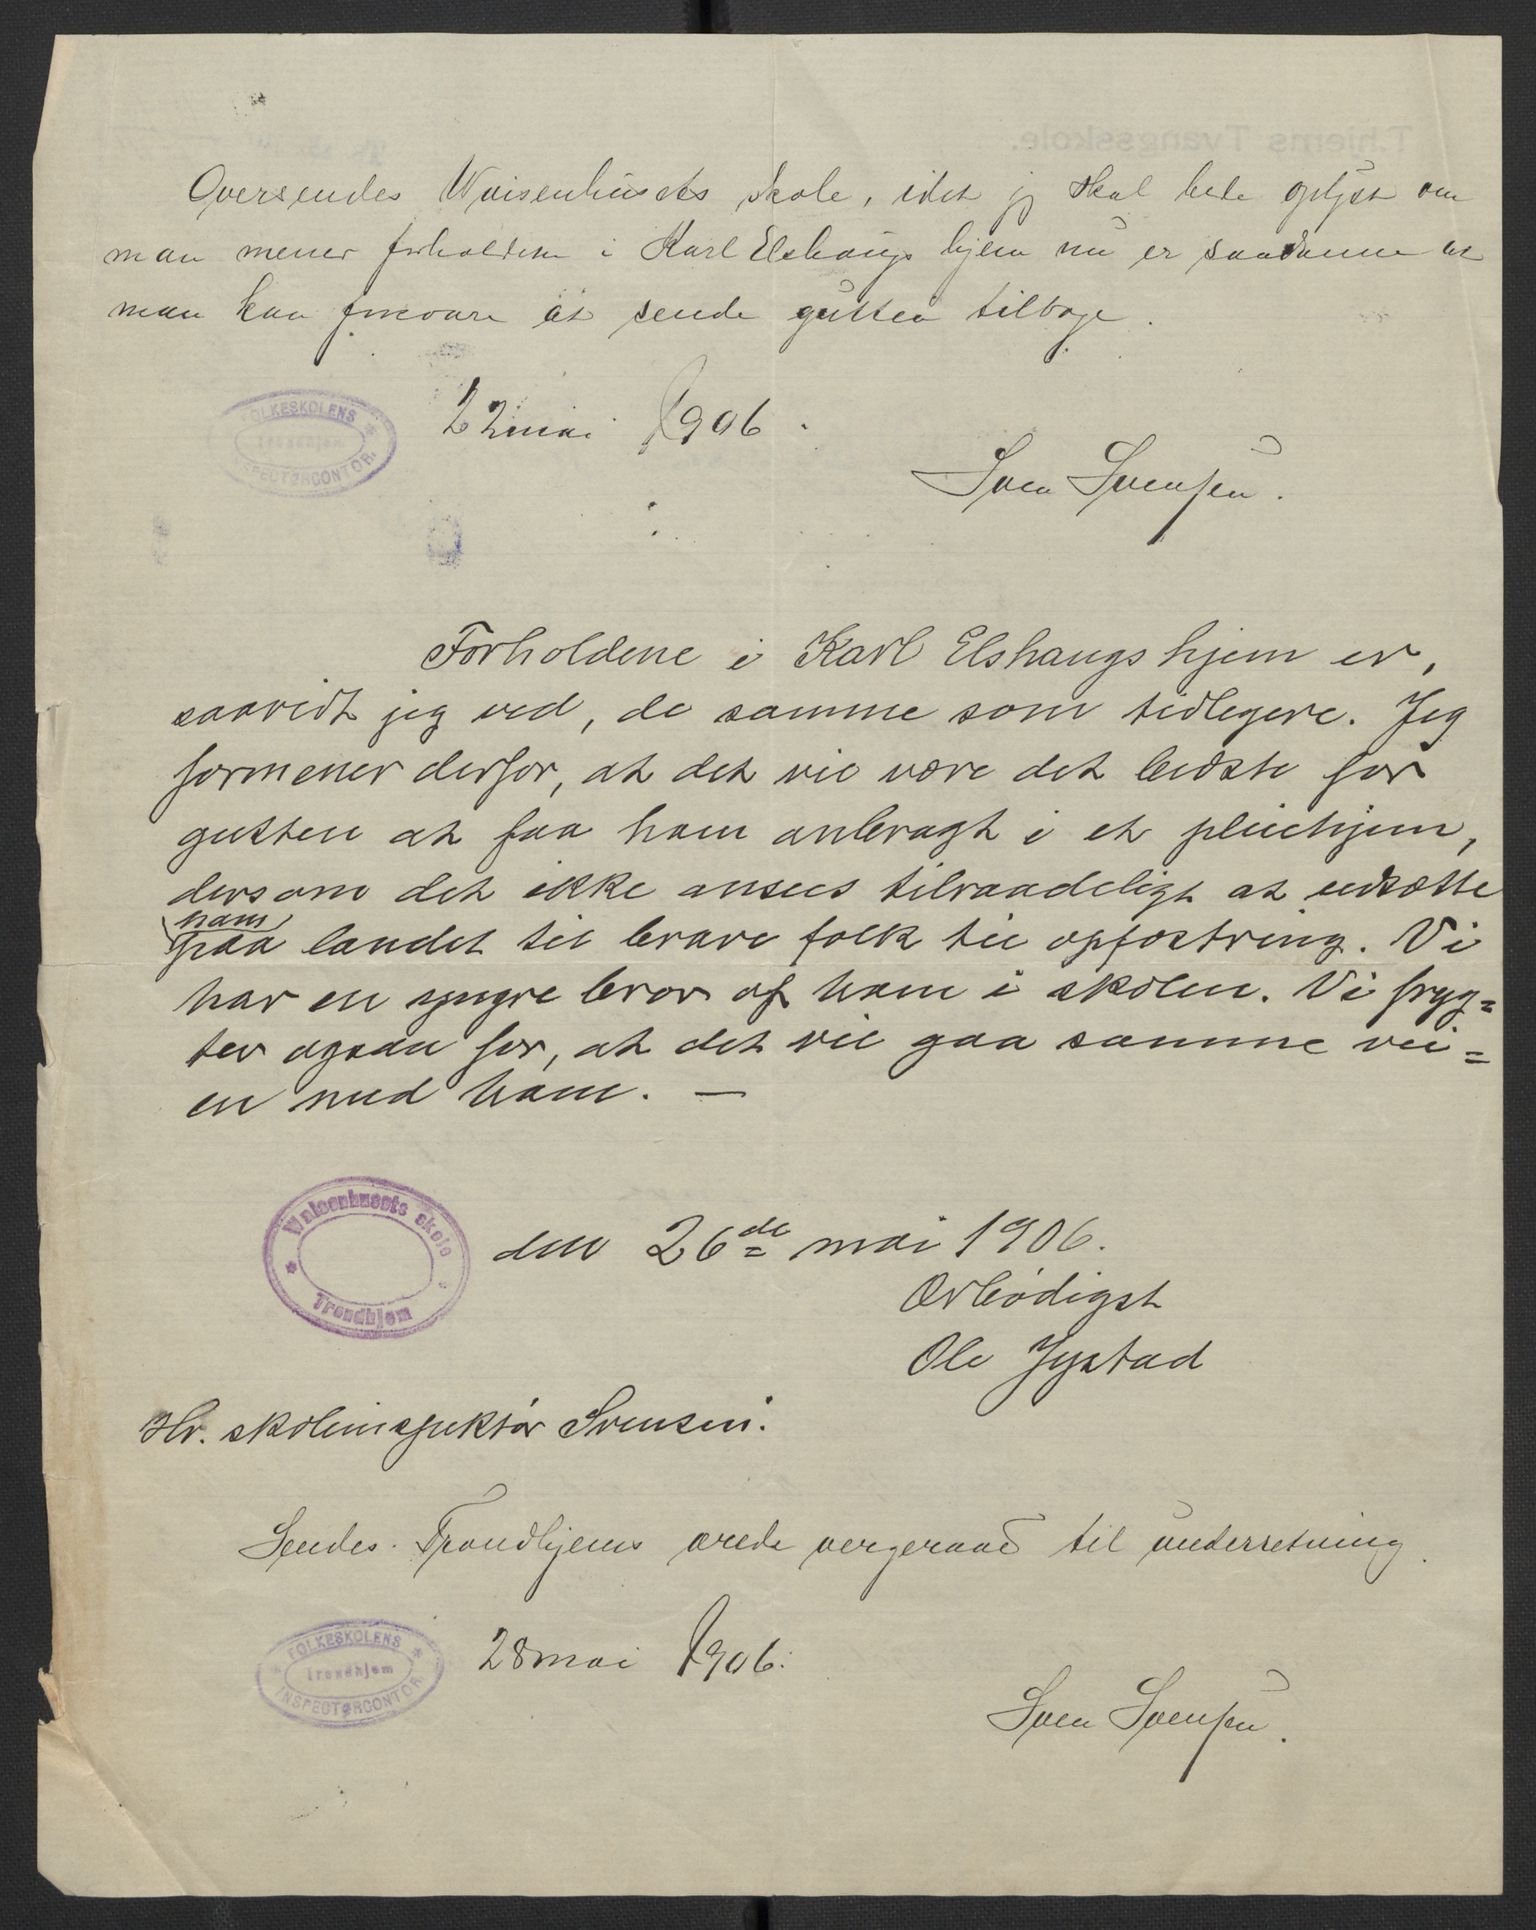 T.hjems Tvangsskole.
Oversendes Waisenhusets skole, idet jeg skal bede oplyst om
man mener forholdene i Karl Elshaugs hjem nu er saadanne at
man kan forsvare at sende gutten tilbage.
FOLKESKOLENS
Trondhjem
INSPECTØRCONTOR
22 mai 1906.
Sven Svensen.
Forholdene i Karl Elshaugs hjem er,
saavidt jeg ved, de samme som tidligere. Jeg
formener derfor, at det vil være det bedste for
gutten at faa ham anbragt i et pleiehjem,
dersom det ikke ansees tilraadeligt at udsætte
ham
paa landet til brave folk til opfostring. Vi
har en yngre bror af ham i skolen. Vi fryg=
ter ogsaa for, at det vil gaa samme vei=
en med ham. —
Waisenhusets skole
Trondhjem
den 26de mai 1906.
Ærbødigst
Ole Jystad
Hr. skoleinspektør Svensen.
Sendes Trondhjems ærede vergeraad til underretning.
FOLKESKOLENS
Trondhjem
INSPECTØRCONTOR
28 mai 1906.
Sven Svensen.